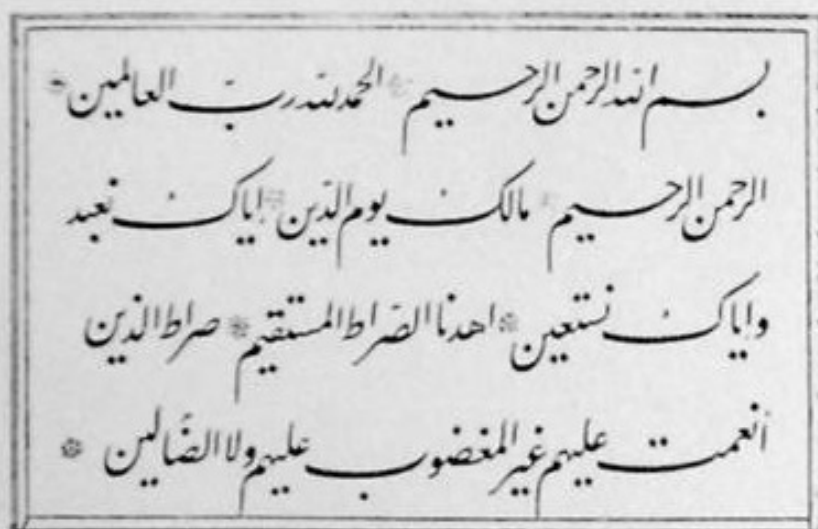 بسم الله الرحمن الرحيم * الحمد لله رب العالمين *
الرحمن الرحيم * مالك يوم الدين * إياك نعبد
وإياك نستعين * اهدنا الصراط المستقيم * صراط الذين
أنعمت عليهم غير المغضوب عليهم ولا الضالين *